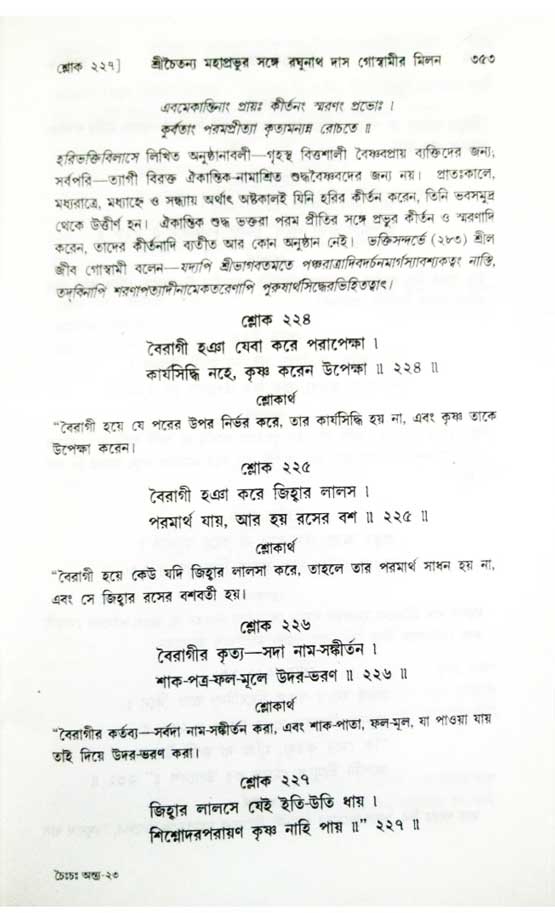 শ্লোক ২২৭]	শ্রীচৈতন্য মহাপ্রভুর সঙ্গে রঘুনাথ দাস গোস্বামীর মিলন	৩৫৩
এবমেকান্তিনাং প্রায়ঃ কীর্তনং স্মরণং প্রভোঃ ।
কুর্বতাং পরমপ্রীত্যা কৃত্যমন্যন্ন রোচতে ॥
হরিভক্তিবিলাসে লিখিত অনুষ্ঠানাবলী—গৃহস্থ বিত্তশালী বৈষ্ণবপ্রায় ব্যক্তিদের জন্য;
সর্বপরি—ত্যাগী বিরক্ত ঐকান্তিক-নামাশ্রিত শুদ্ধবৈষ্ণবদের জন্য নয়। প্রাতঃকালে,
মধ্যরাত্রে, মধ্যাহ্নে ও সন্ধ্যায় অর্থাৎ অষ্টকালই যিনি হরির কীর্তন করেন, তিনি ভবসমুদ্র
থেকে উত্তীর্ণ হন। ঐকান্তিক শুদ্ধ ভক্তরা পরম প্রীতির সঙ্গে প্রভুর কীর্তন ও স্মরণাদি
করেন, তাদের কীর্তনাদি ব্যতীত আর কোন অনুষ্ঠান নেই। ভক্তিসন্দর্ভে (২৮৩) শ্রীল
জীব গোস্বামী বলেন—যদ্যপি শ্রীভাগবতমতে পঞ্চরাত্রাদিবদর্চনমার্গস্যাবশ্যকত্বং নাস্তি,
তদ্বিনাপি শরণাপত্যাদীনামেকতরেণাপি পুরুষার্থসিদ্ধেরভিহিতত্বাৎ।
শ্লোক ২২৪
বৈরাগী হঞা যেবা করে পরাপেক্ষা ।
কার্যসিদ্ধি নহে, কৃষ্ণ করেন উপেক্ষা ॥ ২২৪ ॥
শ্লোকার্থ
“বৈরাগী হয়ে যে পরের উপর নির্ভর করে, তার কার্যসিদ্ধি হয় না, এবং কৃষ্ণ তাকে
উপেক্ষা করেন।
শ্লোক ২২৫
বৈরাগী হঞা করে জিহ্বার লালস ।
পরমার্থ যায়, আর হয় রসের বশ ॥ ২২৫ ॥
শ্লোকার্থ
“বৈরাগী হয়ে কেউ যদি জিহ্বার লালসা করে, তাহলে তার পরমার্থ সাধন হয় না,
এবং সে জিহ্বার রসের বশবর্তী হয়।
শ্লোক ২২৬
বৈরাগীর কৃত্য—সদা নাম-সঙ্কীর্তন ।
শাক-পত্র-ফল-মূলে উদর-ভরণ ॥ ২২৬ ॥
শ্লোকার্থ
“বৈরাগীর কর্তব্য—সর্বদা নাম-সঙ্কীর্তন করা, এবং শাক-পাতা, ফল-মূল, যা পাওয়া যায়
তাই দিয়ে উদর-ভরণ করা।
শ্লোক ২২৭
জিহ্বার লালসে যেই ইতি-উতি ধায় ।
শিশ্নোদরপরায়ণ কৃষ্ণ নাহি পায় ॥” ২২৭ ॥
চৈঃচঃ অন্ত্য-২৩